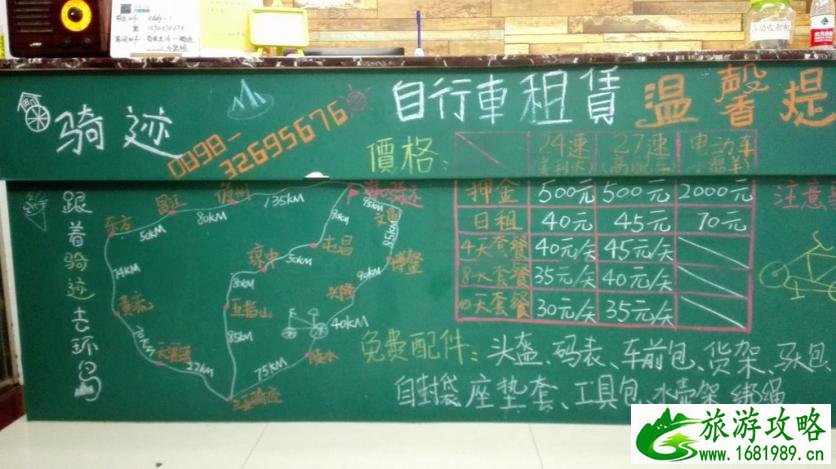 骑迹
0898-32695676
自行車租賃
温馨提
價格:
24速
27速
电动车
押金 500元 500元 2000元
日租 40元 45元 70元
4天套餐 40元/天 45元/天
8天套餐 35元/天 40元/天
10天套餐 30元/天 35元/天
注意
跟着骑迹去环岛
儋州
135KM
昌江
80KM
东方
50KM
文昌
95KM
屯昌
琼中
50KM
博鳌
五指山
85KM
40KM
陵水
75KM
22KM
三亚骑迹
免费配件:头盔、码表、车前包、货架、驮包
自封袋座垫套、工具包、水壶架、绑绳
旅游攻略
www.1681989.cn